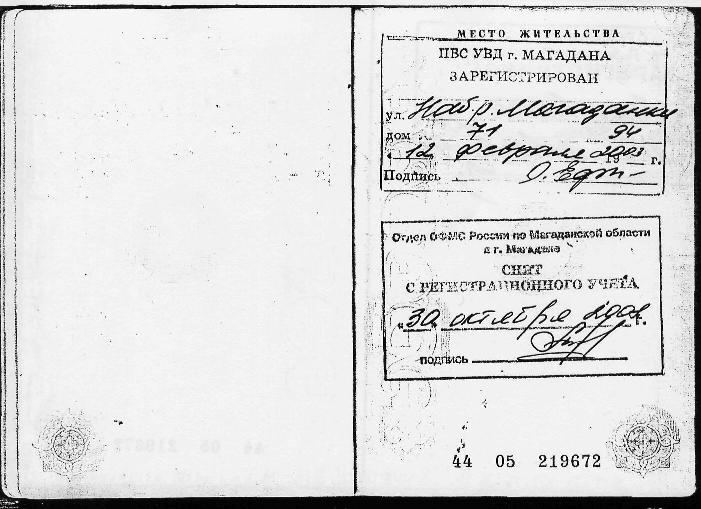 МЕСТО ЖИТЕЛЬСТВА
ПВС УВД г. МАГАДАНА
ЗАРЕГИСТРИРОВАН
ул. Наб. р. Магаданки
дом 71 94
"12" февраля 2003 19 г.
Подпись
Отдел ОФМС России по Магаданской области
в г. Магадане
СНЯТ
С РЕГИСТРАЦИОННОГО УЧЕТА
"30" октября г.
подпись
44 05 219672